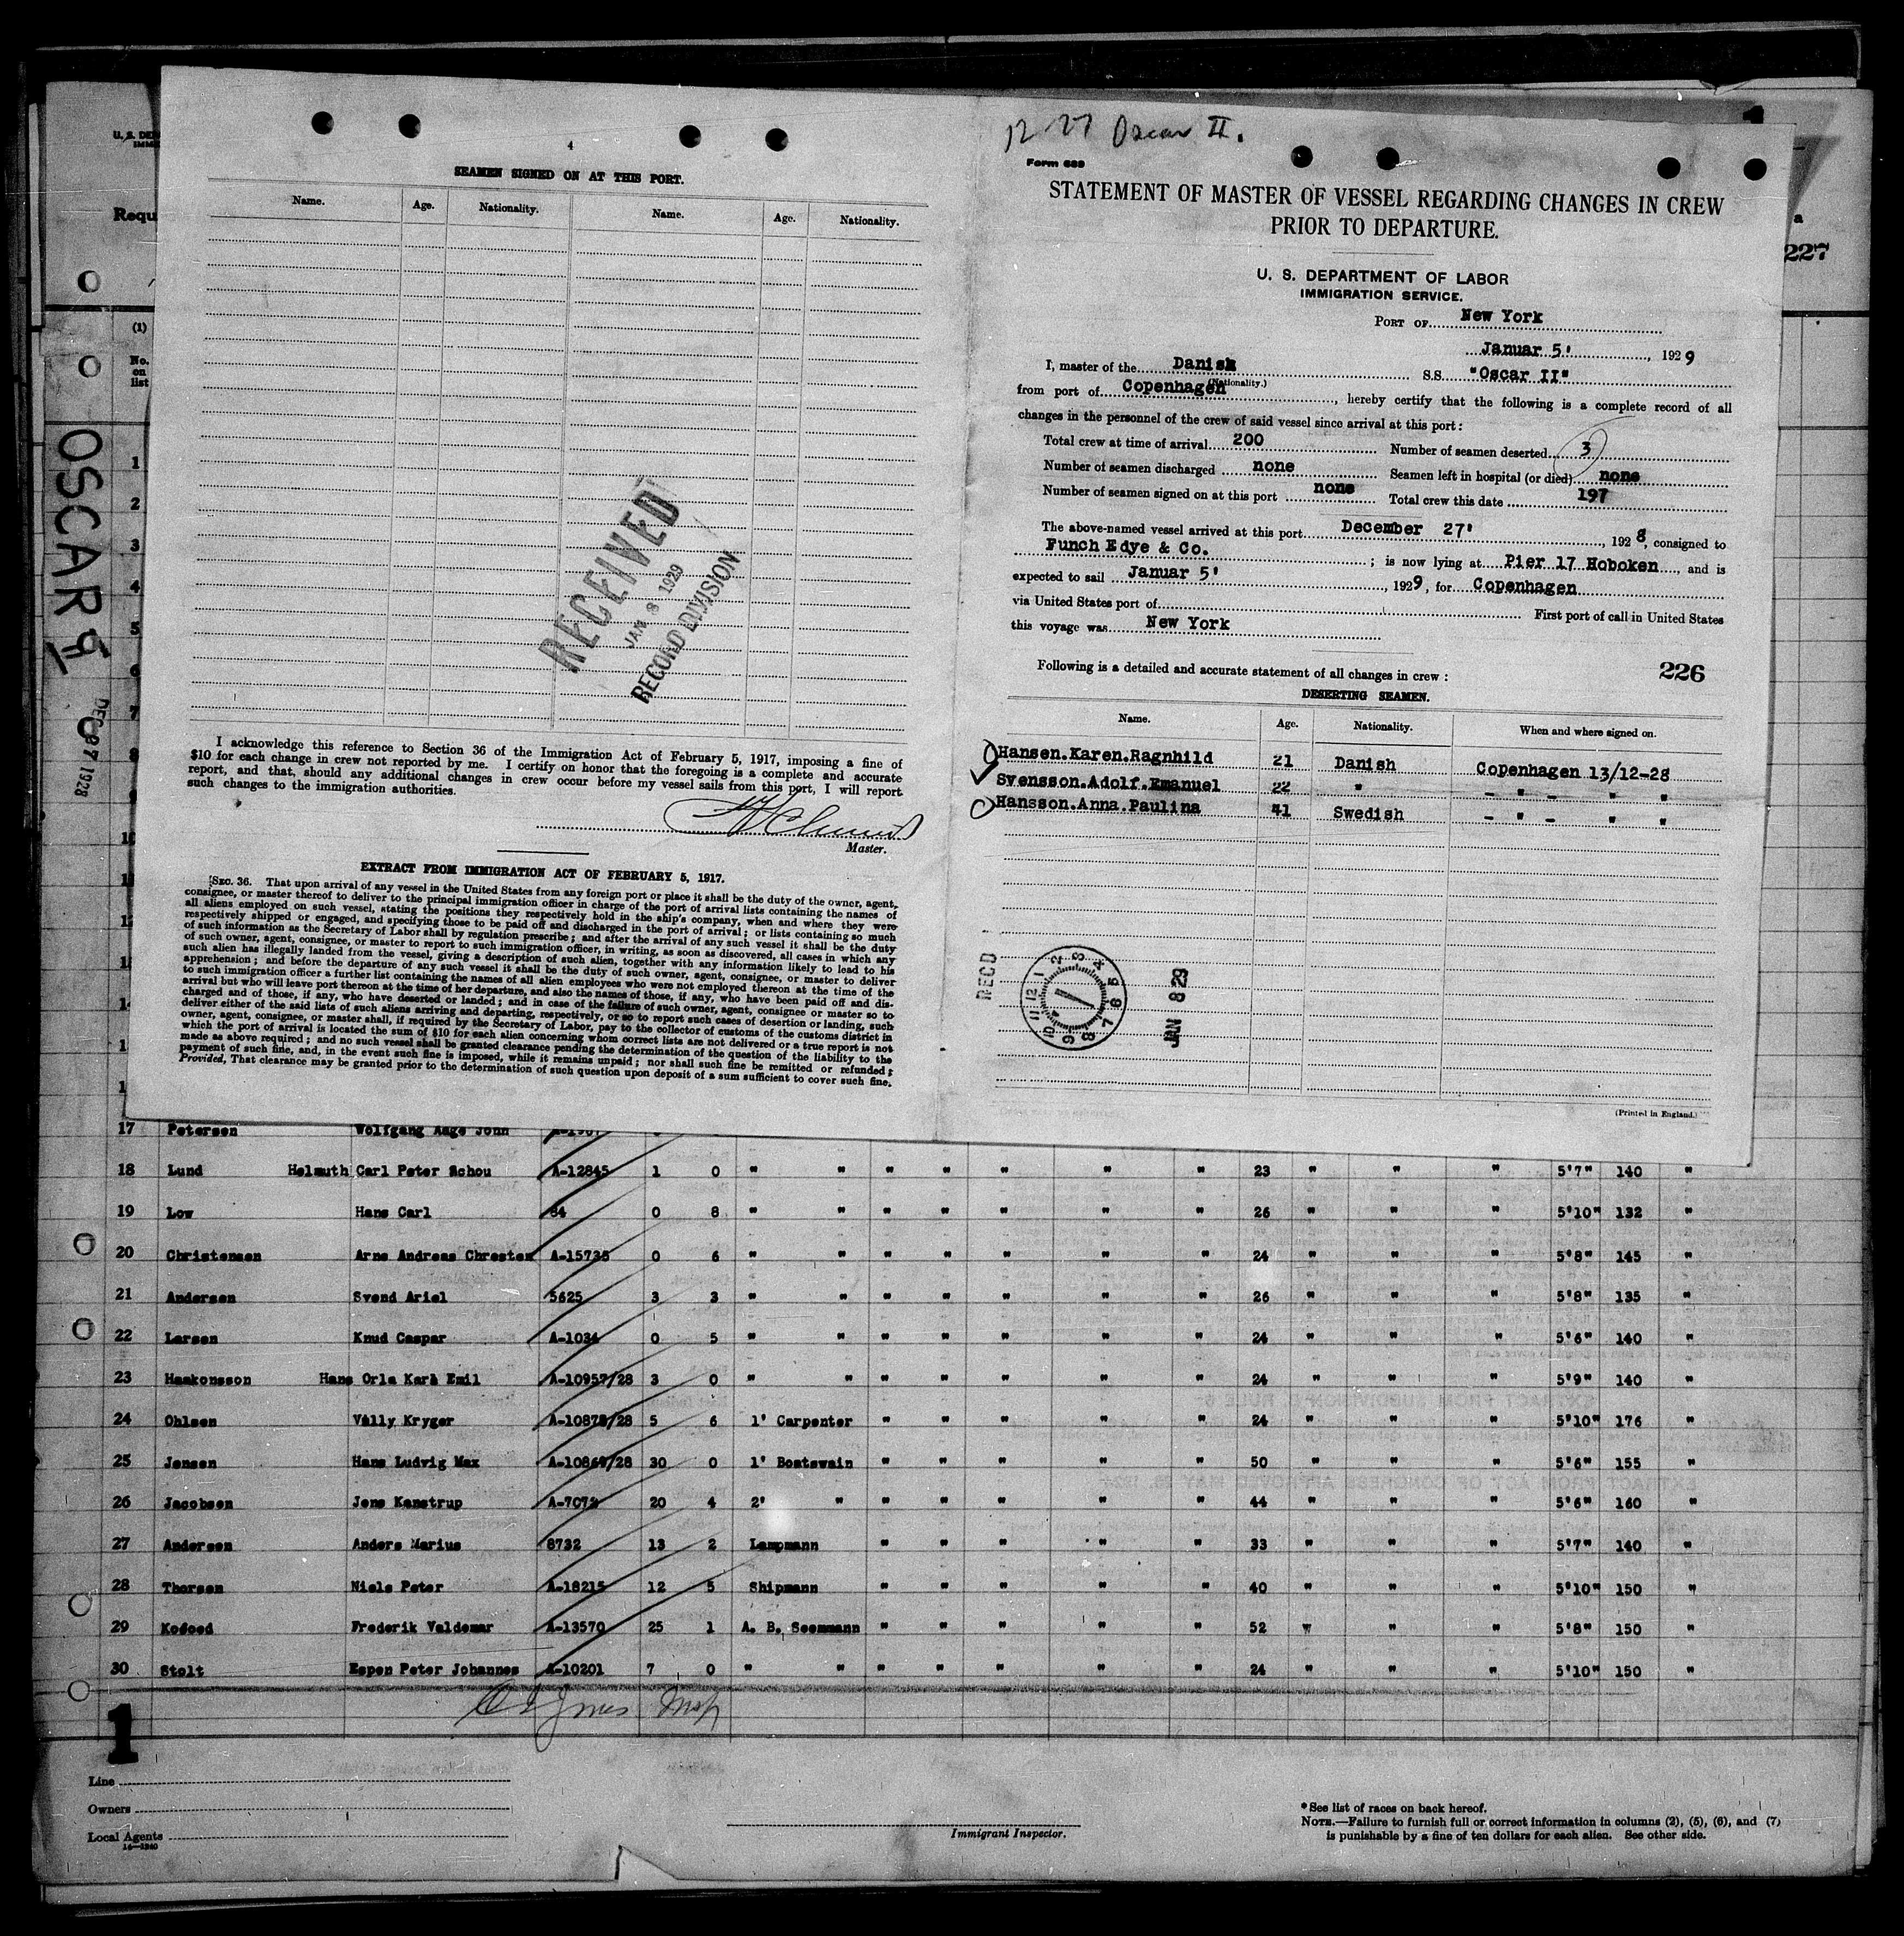 U. S. DE
IMM
Requ
(1)
No.
on
list
1
2
3
4
5
6
7
8
9
10
OSCAR II
DEC 27 1928
4
SEAMEN SIGNED ON AT THIS PORT.
Name. Age. Nationality. Name. Age. Nationality.
RECEIVED
JAN 8 1929
RECORD DIVISION
I acknowledge this reference to Section 36 of the Immigration Act of February 5, 1917, imposing a fine of
$10 for each change in crew not reported by me. I certify on honor that the foregoing is a complete and accurate
report, and that, should any additional changes in crew occur before my vessel sails from this port, I will report
such changes to the immigration authorities.
Master.
EXTRACT FROM IMMIGRATION ACT OF FEBRUARY 5, 1917.
SEC. 36. That upon arrival of any vessel in the United States from any foreign port or place it shall be the duty of the owner, agent,
consignee, or master thereof to deliver to the principal immigration officer in charge of the port of arrival lists containing the names of
all aliens employed on such vessel, stating the positions they respectively hold in the ship's company, when and where they were
respectively shipped or engaged, and specifying those to be paid off and discharged in the port of arrival; or lists containing so much
of such information as the Secretary of Labor shall by regulation prescribe; and after the arrival of any such vessel it shall be the duty
of such owner, agent, consignee, or master to report to such immigration officer, in writing, as soon as discovered, all cases in which any
such alien has illegally landed from the vessel, giving a description of such alien, together with any information likely to lead to his
apprehension; and before the departure of any such vessel it shall be the duty of such owner, agent, consignee, or master to deliver
to such immigration officer a further list containing the names of all alien employees who were not employed thereon at the time of the
arrival but who will leave port thereon at the time of her departure, and also the names of those, if any, who have been paid off and dis-
charged and of those, if any, who have deserted or landed; and in case of the failure of such owner, agent, consignee or master so to
deliver either of the said lists of such aliens arriving and departing, respectively, or so to report such cases of desertion or landing, such
owner, agent, consignee, or master shall, if required by the Secretary of Labor, pay to the collector of customs of the customs district in
which the port of arrival is located the sum of $10 for each alien concerning whom correct lists are not delivered or a true report is not
made as above required; and no such vessel shall be granted clearance pending the determination of the question of the liability to the
payment of such fine, and, in the event such fine is imposed, while it remains unpaid; nor shall such fine be remitted or refunded:
Provided, That clearance may be granted prior to the determination of such question upon deposit of a sum sufficient to cover such fine.
12-27 Oscar II.
Form 689
STATEMENT OF MASTER OF VESSEL REGARDING CHANGES IN CREW
PRIOR TO DEPARTURE.
U. S. DEPARTMENT OF LABOR
IMMIGRATION SERVICE.
PORT OF New York
Januar 5' , 1929
I, master of the Danish SS. "Oscar II"
(Nationality.)
from port of Copenhagen , hereby certify that the following is a complete record of all
changes in the personnel of the crew of said vessel since arrival at this port:
Total crew at time of arrival 200 Number of seamen deserted 3
Number of seamen discharged none Seamen left in hospital (or died) none
Number of seamen signed on at this port none Total crew this date 197
The above-named vessel arrived at this port December 27' , 1928, consigned to
Funch Edye & Co. ; is now lying at Pier 17 Hoboken , and is
expected to sail Januar 5' , 1929, for Copenhagen
via United States port of First port of call in United States
this voyage was New York
Following is a detailed and accurate statement of all changes in crew: 226
DESERTING SEAMEN.
Name. Age. Nationality. When and where signed on.
Hansen.Karen.Ragnhild 21 Danish Copenhagen 13/12-28
Svensson.Adolf.Emanuel 22 " - " - " "
Hansson.Anna.Paulina 41 Swedish - " - " "
REC'D
1 2 3 4 5 6 7 8 9 10 11 12
JAN 8 29
(Printed in England.)
a
227
17 Petersen Wolfgang Aage John
18 Lund Helmuth Carl Peter Schou A-12845 1 0 " " " " " " " 23 " " " 5'7" 140 "
19 Low Hans Carl 84 0 8 " " " " " " " 26 " " " 5'10" 132 "
20 Christensen Arne Andreas Chresten A-15735 0 6 " " " " " " " 24 " " " 5'8" 145 "
21 Andersen Svend Ariel 5625 3 3 " " " " " " " 26 " " " 5'8" 135 "
22 Larsen Knud Caspar A-1034 0 5 " " " " " " " 24 " " " 5'6" 140 "
23 Haakonsson Hans Orla Karl Emil A-10957/28 3 0 " " " " " " " 24 " " " 5'9" 140 "
24 Ohlsen Vally Kryger A-10878/28 5 6 1' Carpenter " " " " " 24 " " " 5'10" 176 "
25 Jensen Hans Ludvig Max A-10869/28 30 0 1' Boatswain " " " " " 50 " " " 5'6" 155 "
26 Jacobsen Jens Kanstrup A-7072 20 4 2' " " " " " " 44 " " " 5'6" 160 "
27 Andersen Anders Marius 8732 13 2 Lampmann " " " " " 33 " " " 5'7" 140 "
28 Thorsen Niels Peter A-18215 12 5 Shipmann " " " " " 40 " " " 5'10" 150 "
29 Kofoed Frederik Valdemar A-13570 25 1 A. B. Seemmann " " " " " 52 " " " 5'8" 150 "
30 Stolt Espen Peter Johannes A-10201 7 0 " " " " " " " 24 " " " 5'10" 150 "
1
Line
Owners
Local Agents
14—1240
Immigrant Inspector.
* See list of races on back hereof.
NOTE.—Failure to furnish full or correct information in columns (2), (5), (6), and (7)
is punishable by a fine of ten dollars for each alien. See other side.